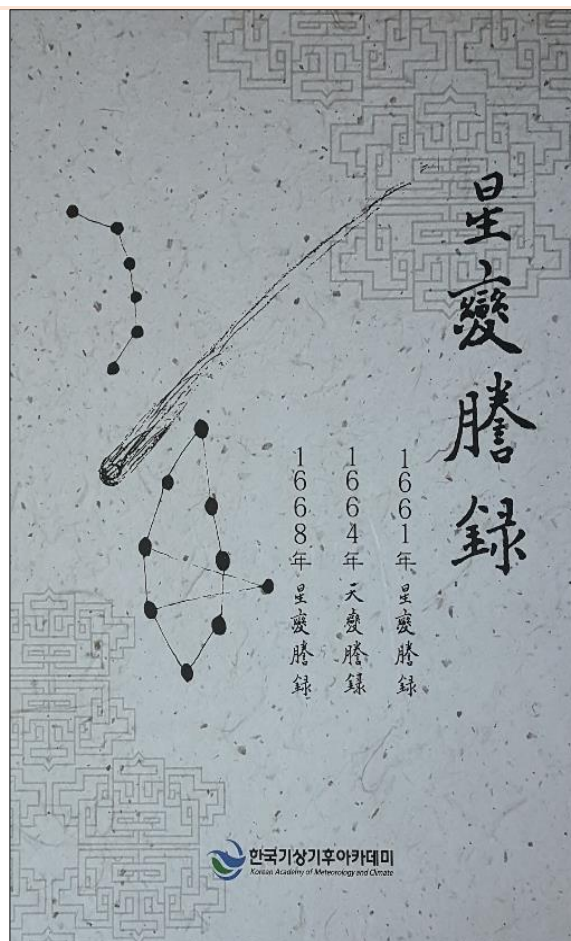 星變謄錄
1661年 星變謄錄
1664年 天變謄錄
1668年 星變謄錄
한국기상기후아카데미
Korean Academy of Meteorology and Climate